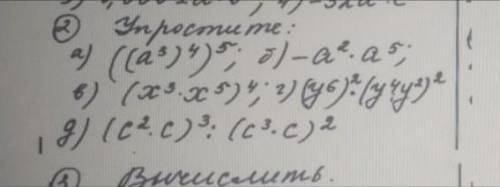 ② Упростите:
а) ((a³)⁴)⁵; б) -a²·a⁵;
в) (x³·x⁵)⁴; г) (y⁶)²:(y⁴y²)²
д) (c²·c)³:(c³·c)²
③ Вычислить.